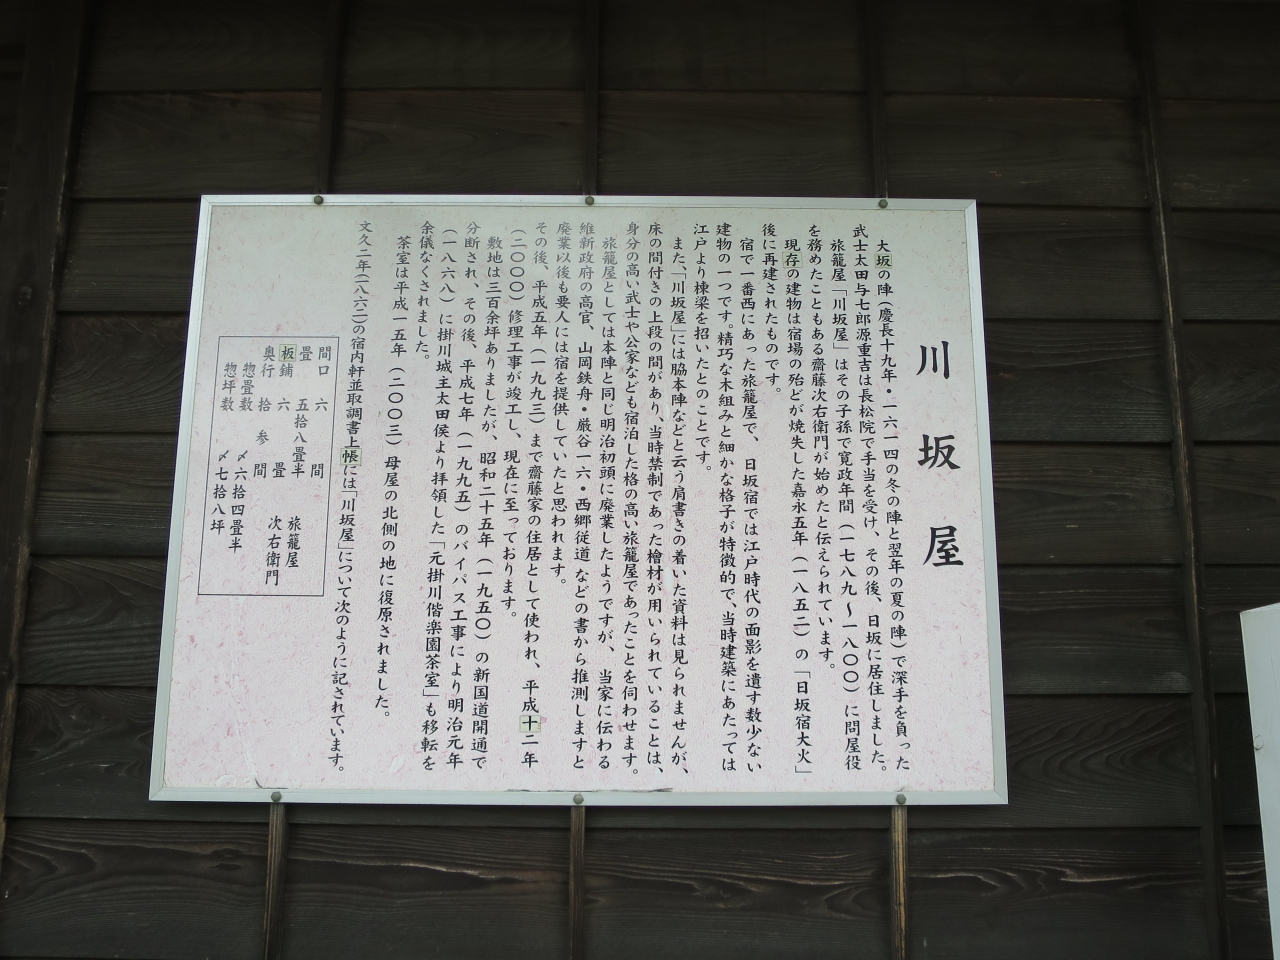 川坂屋
大坂の陣（慶長十九年・一六一四の冬の陣と翌年の夏の陣）で深手を負った
武士太田与七郎源重吉は長松院で手当を受け、その後、日坂に居住しました。
旅籠屋「川坂屋」はその子孫で寛政年間（一七八九～一八〇〇）に問屋役
を務めたこともある齋藤次右衛門が始めたと伝えられています。
現存の建物は宿場の殆どが焼失した嘉永五年（一八五二）の「日坂宿大火」
後に再建されたものです。
宿で一番西にあった旅籠屋で、日坂宿では江戸時代の面影を遺す数少ない
建物の一つです。精巧な木組みと細かな格子が特徴的で、当時建築にあたっては
江戸より棟梁を招いたとのことです。
また、「川坂屋」には脇本陣などと云う肩書きの着いた資料は見られませんが、
床の間付きの上段の間があり、当時禁制であった檜材が用いられていることは、
身分の高い武士や公家なども宿泊した格の高い旅籠屋であったことを伺わせます。
旅籠屋としては本陣と同じ明治初頭に廃業したようですが、当家に伝わる
維新政府の高官、山岡鉄舟・巌谷一六・西郷従道などの書から推測しますと
廃業以後も要人には宿を提供していたと思われます。
その後、平成五年（一九九三）まで齋藤家の住居として使われ、平成十二年
（二〇〇〇）修理工事が竣工し、現在に至っております。
敷地は三百余坪ありましたが、昭和二十五年（一九五〇）の新国道開通で
分断され、その後、平成七年（一九九五）のバイパス工事により明治元年
（一八六八）に掛川城主太田侯より拝領した「元掛川偕楽園茶室」も移転を
余儀なくされました。
茶室は平成一五年（二〇〇三）母屋の北側の地に復原されました。
文久二年（一八六二）の宿内軒並取調書上帳には「川坂屋」について次のように記されています。
間口 六 間
畳 五拾八畳半 旅籠屋
板鋪 六 畳 次右衛門
奥行 拾 参 間
惣畳数 〆六拾四畳半
惣坪数 〆七拾八坪